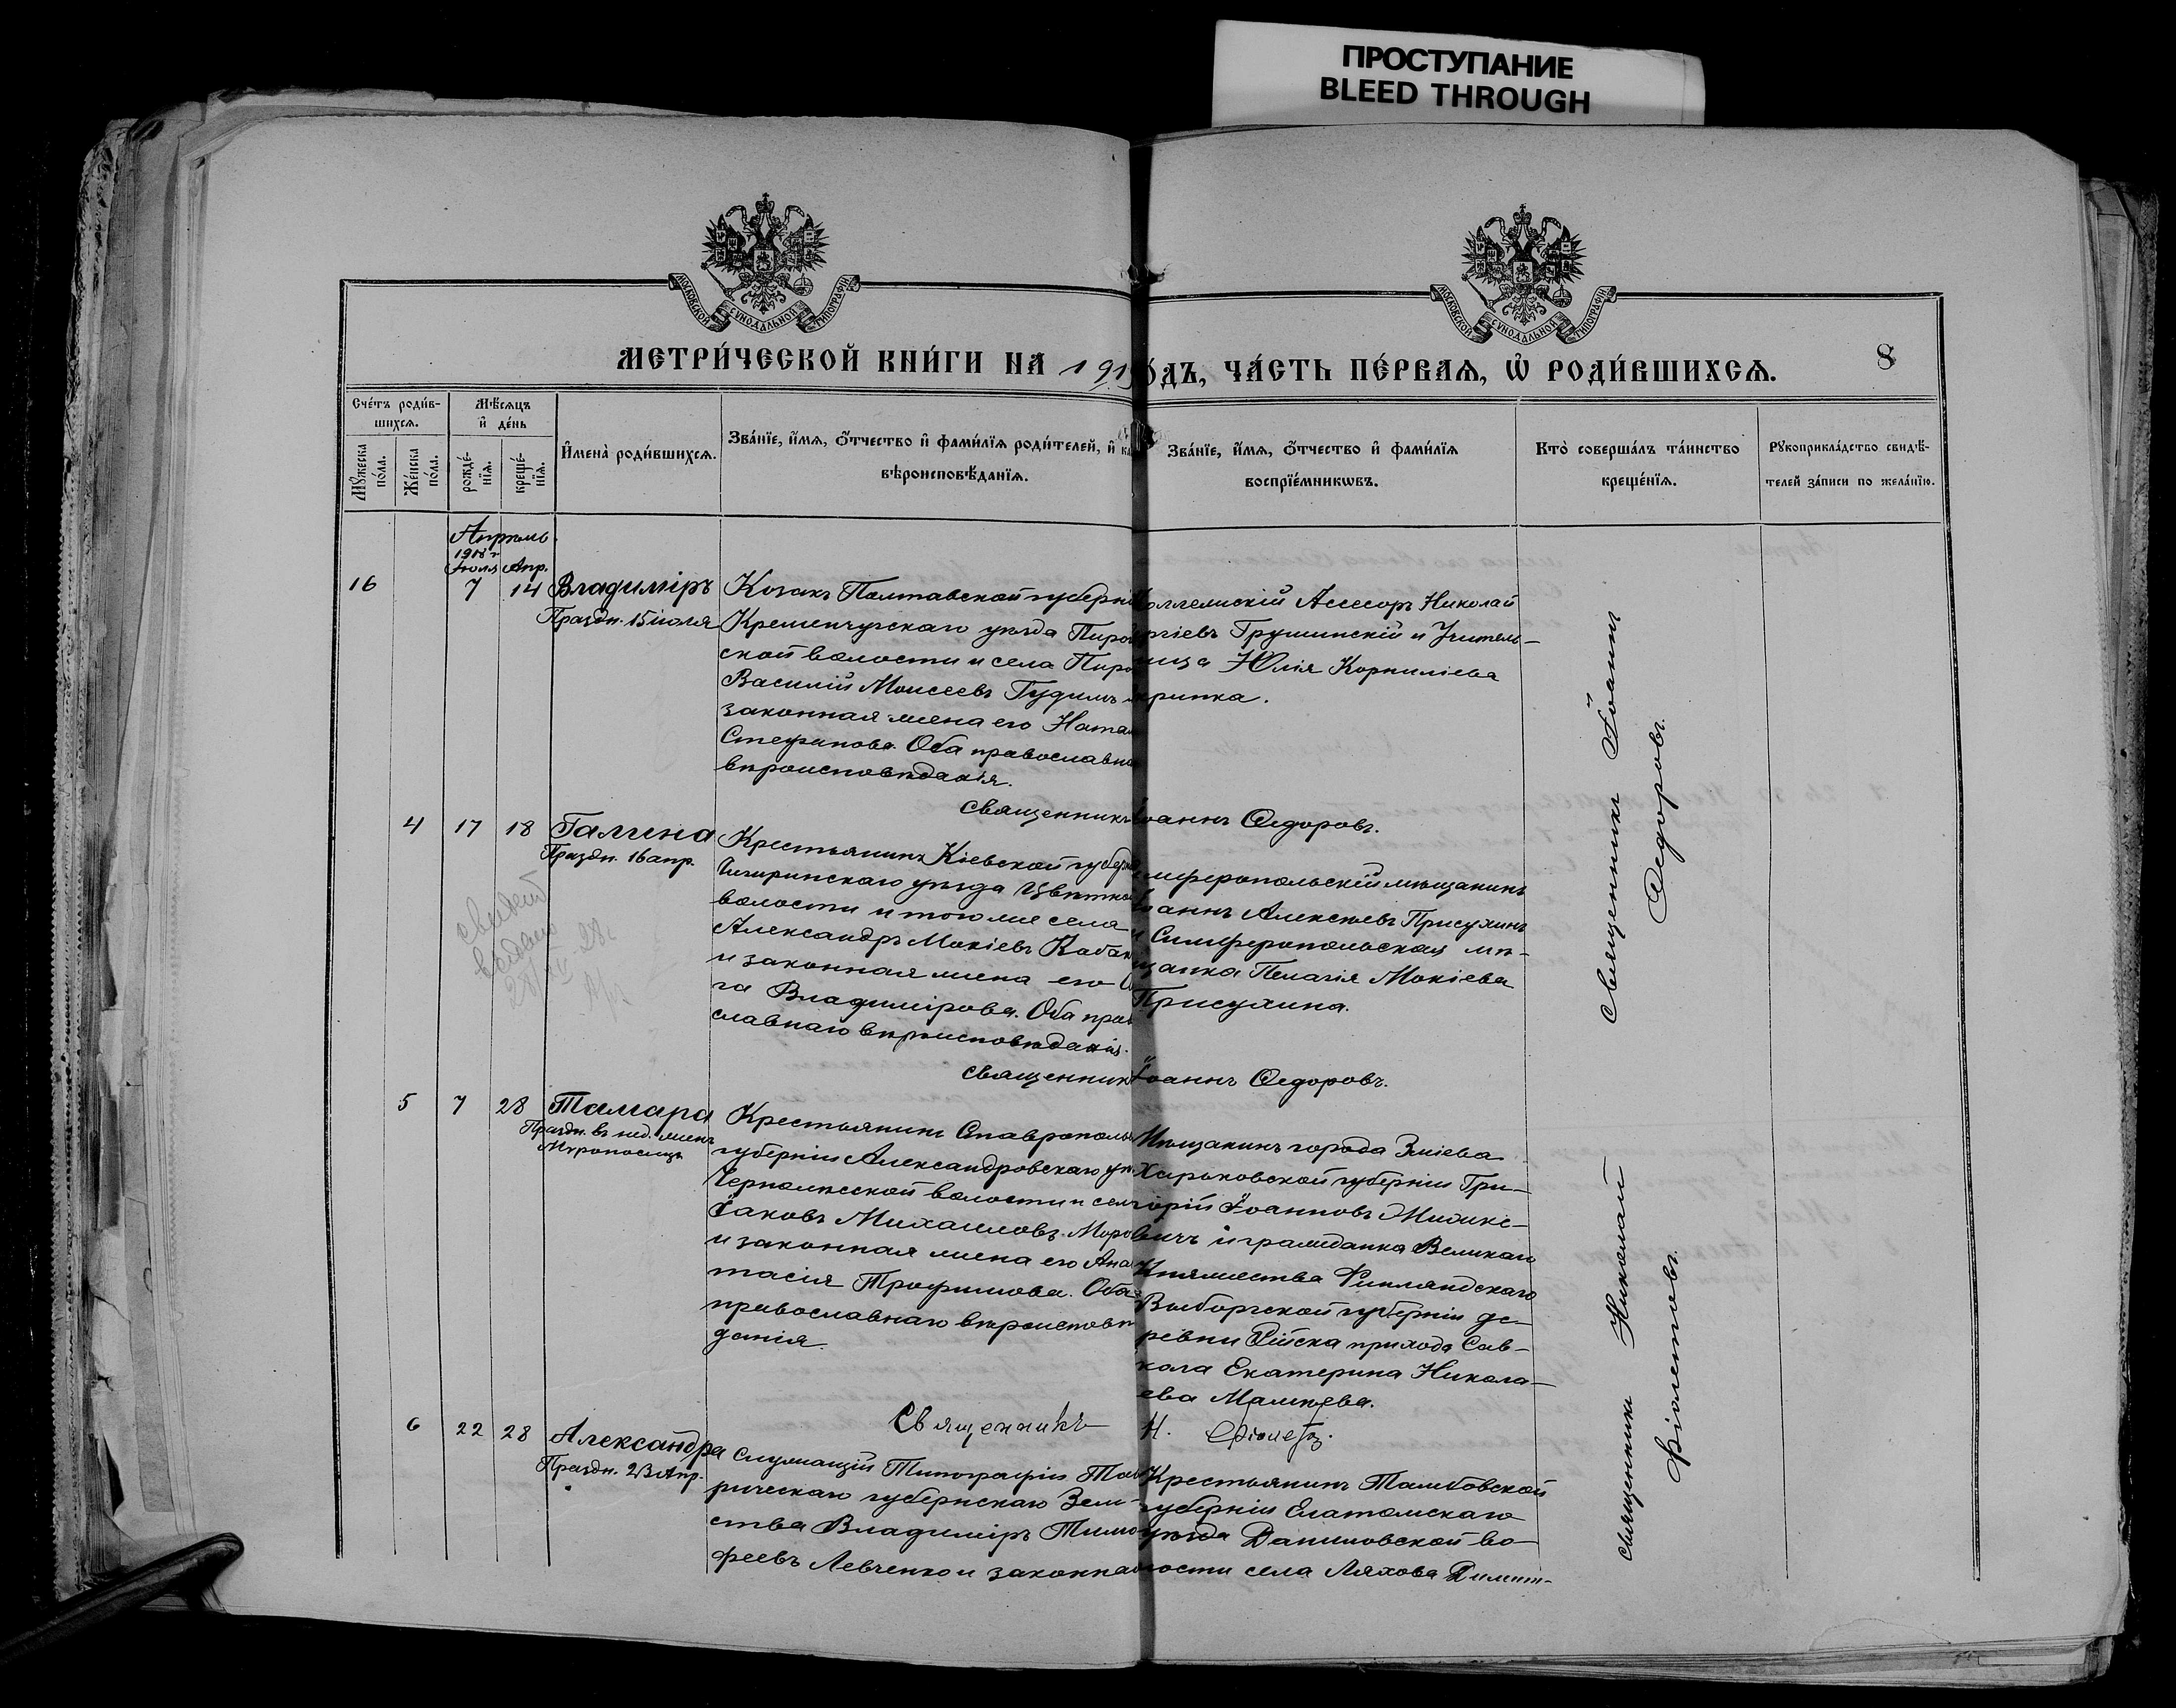 ПРОСТУПАНИЕ
BLEED THROUGH
МОСКОВСКОЙ СѴНОДАЛЬНОЙ ТИПОГРАФІИ
МОСКОВСКОЙ СѴНОДАЛЬНОЙ ТИПОГРАФІИ
МЕТРИ́ЧЕСКОЙ КНИ́ГИ НА 191
О́ДЪ, ЧА́СТЬ ПЕ́РВАѦ, Ѽ РОДИ́ВШИХСѦ.
8
Сче́тъ роди́в-
шихсѧ.
Мꙋ́жеска по́ла.
Же́нска по́ла.
Мѣ́сѧцъ
и҆ де́нь
рожде́-
нїѧ.
креще́-
нїѧ.
И҆мена̀ роди́вшихсѧ.
Зва́нїе, и҆́мѧ, ѻ҆́тчество и҆ фами́лїѧ роди́телей, и҆ ка
вѣроисповѣ́данїѧ.
Зва́нїе, и҆́мѧ, ѻ҆́тчество и҆ фами́лїѧ
воспрїе́мникѡвъ.
Кто̀ соверша́лъ та́инство
креще́нїѧ.
Рꙋкоприкла́дство свидѣ́-
телей за́писи по жела́нїю.
Апрѣль
1908 г
Іюля Апр.
16 7 14 Владиміръ
Праздн. 15 іюля
Козакъ Полтавской губерн
Кременчугскаго уѣзда Пирог
ской волости и села Пиро
Василій Моисеевъ Гудимъ
законная жена его Ната
Стефанова. Оба православна
вѣроисповѣданія.
оллежскій Асессоръ Николай
ргіевъ Грушинскій и Учитель-
ница Юлія Корниліева
крипка.
Священникъ Іоаннъ Ѳедоровъ.
4 17 18 Галина
Праздн. 16 апр.
Крестьянинъ Кіевской губерн
Чигиринскаго уѣзда Цвѣтко
волости и того же села
Александръ Мокіевъ Кабан
и законная жена его О
га Владимірова. Оба прав
славнаго вѣроисповѣданія.
имферопольскій мѣщанинъ
Іоаннъ Алексѣевъ Присухинъ
и Симферопольская мѣ-
щанка Пелагія Мокіева
Присухина.
Священник Іоаннъ Ѳедоровъ.
Священникъ Іоаннъ
Ѳедоровъ.
5 7 28 Тамара
Праздн. въ нед. женъ
Мѵроносицъ
Крестьянинъ Ставрополь
губерніи Александровскаго уѣ
Чернолѣсской волости и села
Іаковъ Михаиловъ Моро
и законная жена его Ана
тасія Трофимова. Оба
православнаго вѣроисповѣ
данія.
Мѣщанинъ города Зміева
Харьковской губерніи Гри-
горій Іоанновъ
вичъ и гражданка Великаго
Княжества Финляндскаго
Выборгской губерніи де-
ревни прихода Сав-
кола Екатерина Никола-
ева
Священникъ Н. Фіолетовъ.
6 22 28 Александра
Праздн. 23 Апр.
Служащій Типографіи Тав
рическаго губернскаго Зем-
ства Владиміръ Тимо
феевъ Левченко и законна
Крестьянинъ Тамбовской
губерніи Елатомскаго
уѣзда Даниловской во-
лости села Ляхова Димит-
Священникъ Николай
Фіолетовъ.